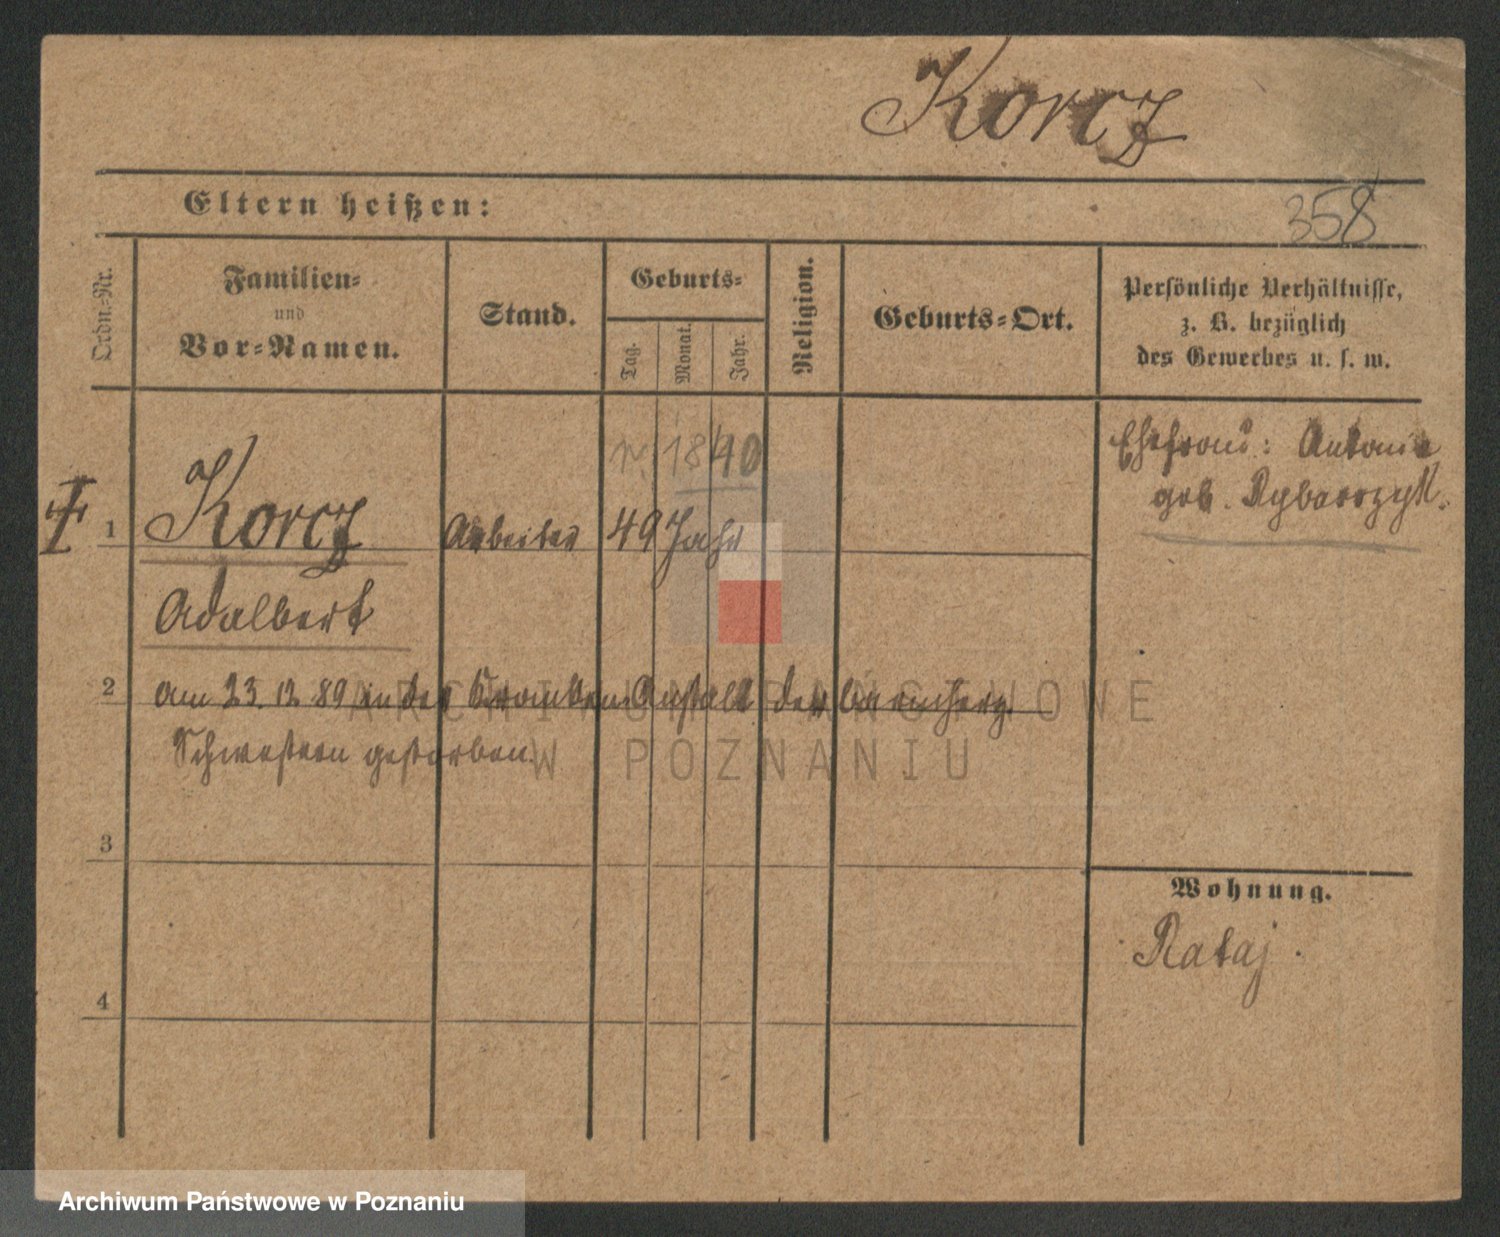 Korcz
Eltern heißen:
358
Ordn.-Nr.
Familien-
und
Vor-Namen.
Stand.
Geburts-
Tag.
Monat.
Jahr.
Religion.
Geburts-Ort.
Persönliche Verhältnisse,
z. B. bezüglich
des Gewerbes u. s. w.
1840
Ehefrau: Antonie
geb. Rybarczyk.
1
Korcz
Arbeiter
49 Jahr
Adalbert
2
am 23.12.89 in der Kranken Anstalt der barmherz.
Schwestern gestorben.
ARCHIWUM PAŃSTWOWE
W POZNANIU
3
Wohnung.
Rataj.
4
Archiwum Państwowe w Poznaniu